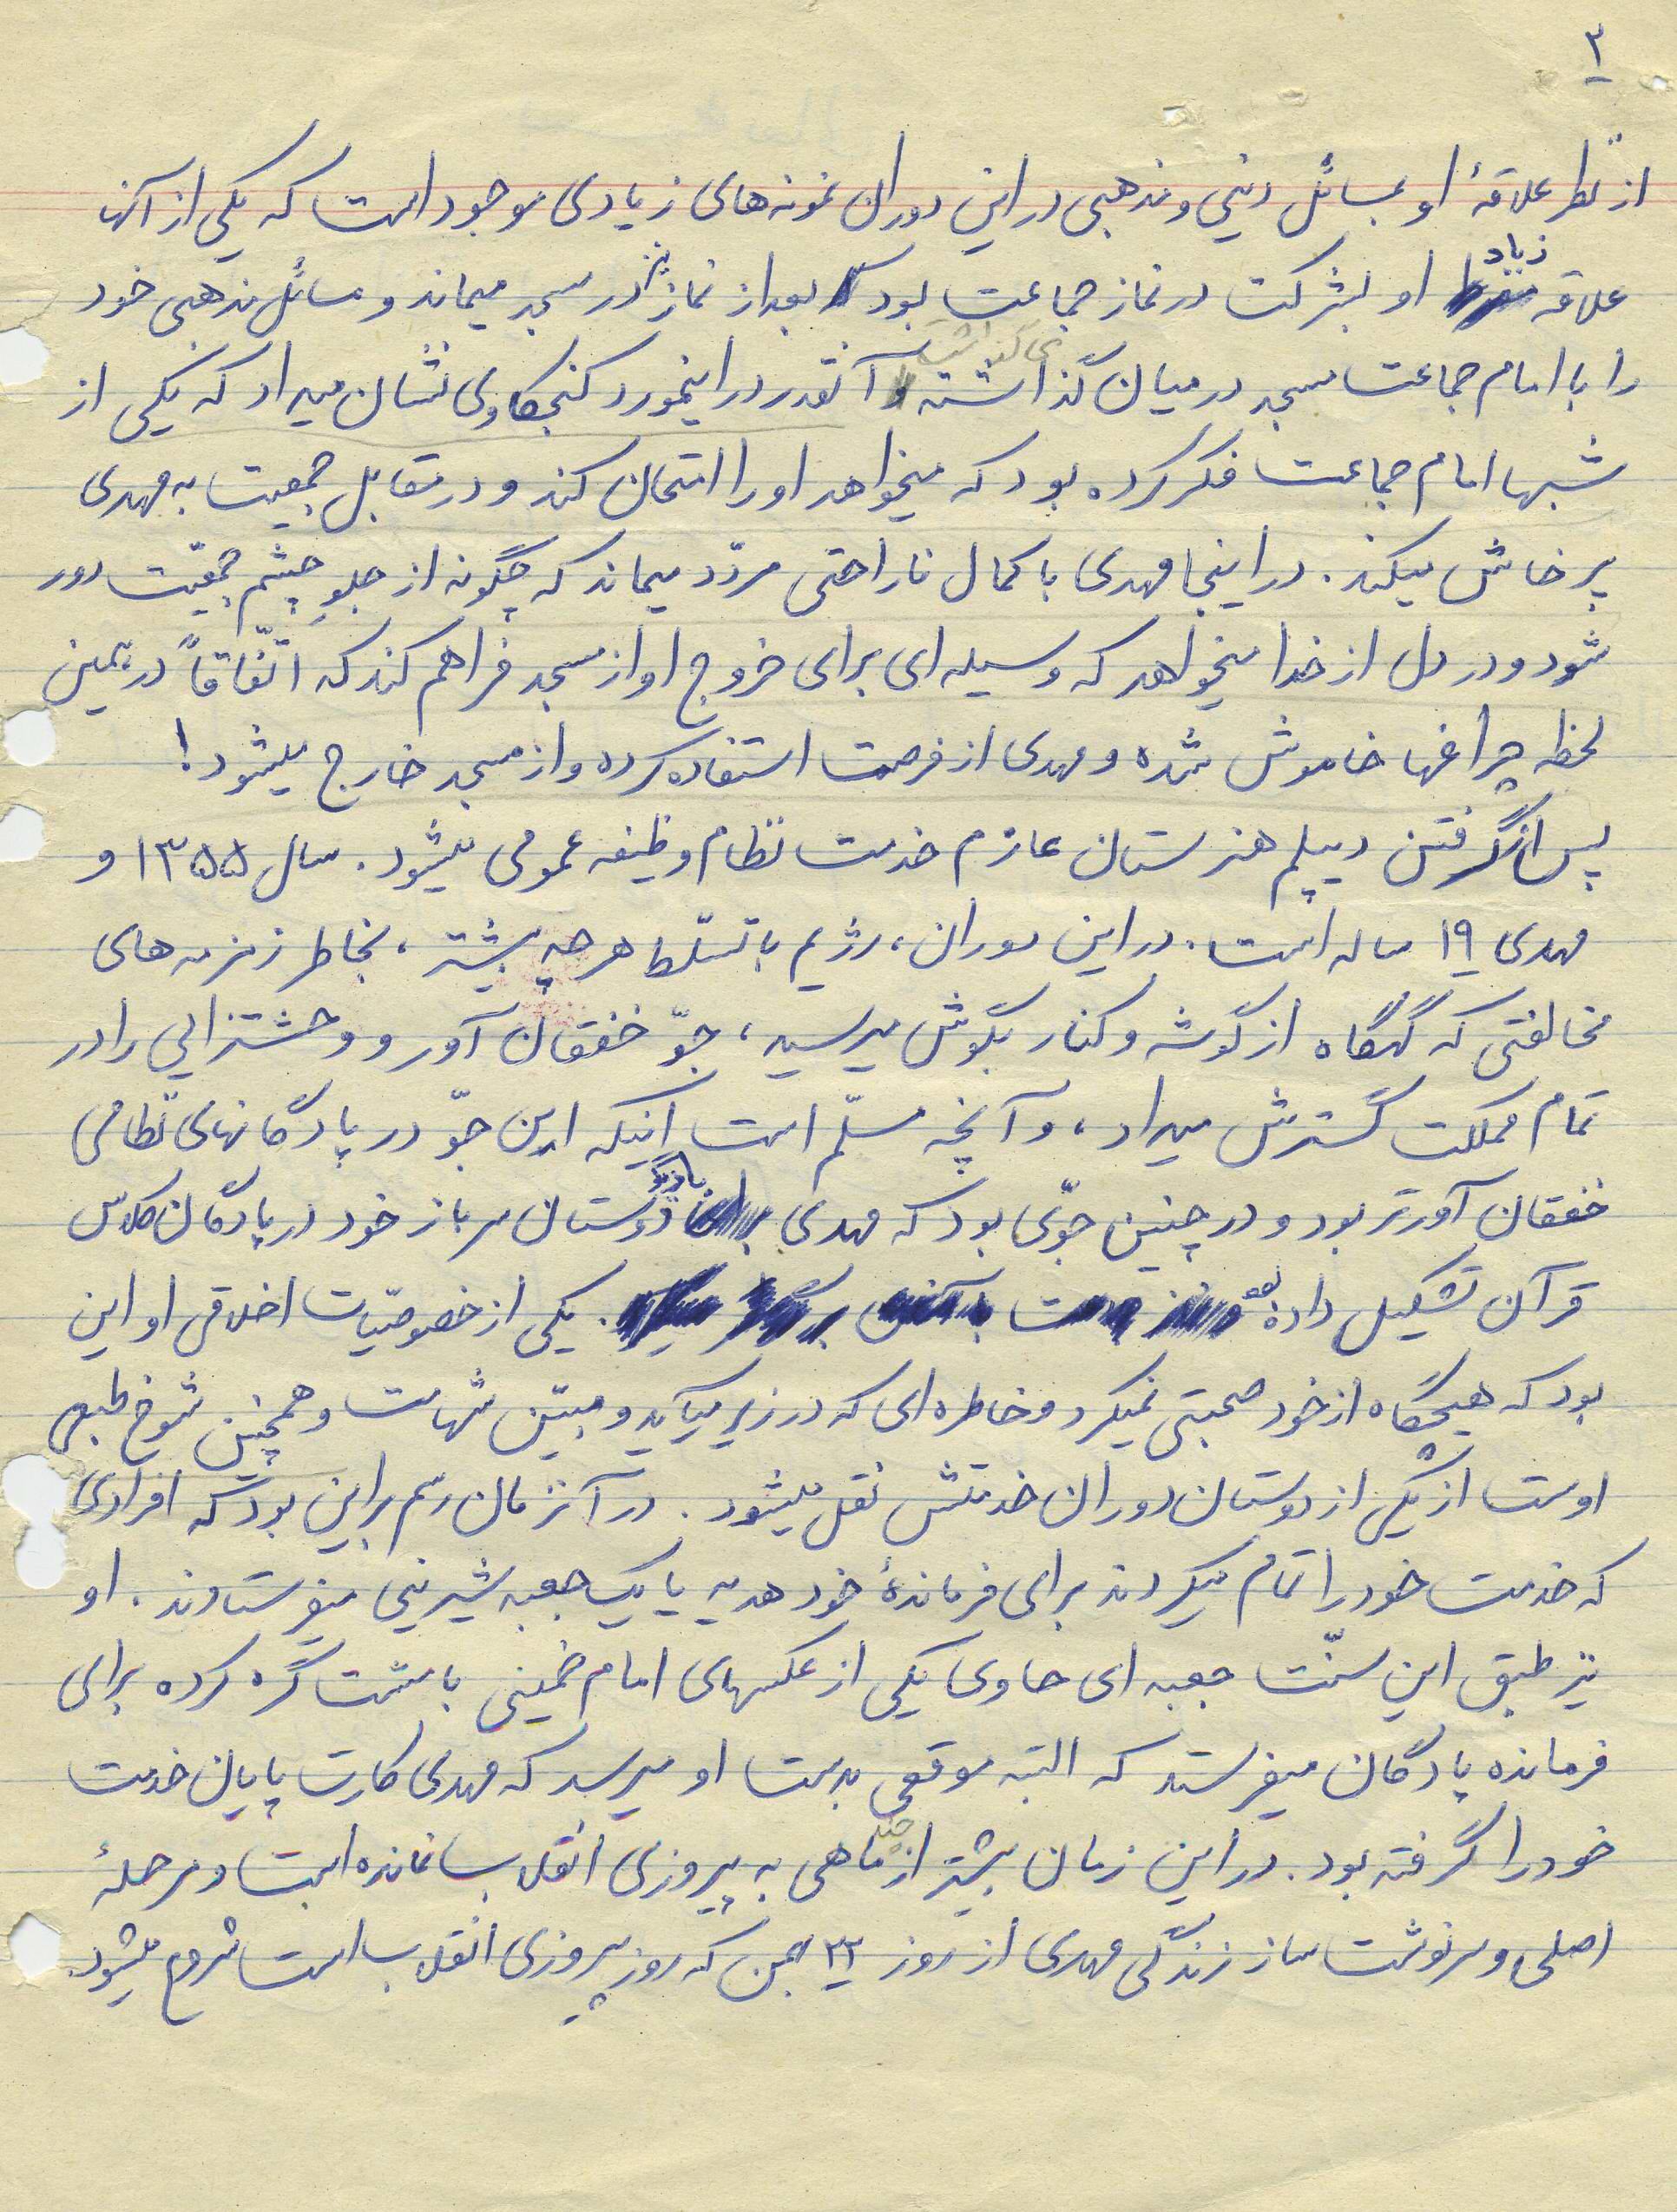 ۲
از نظر علاقهٔ او بمسائل دینی و مذهبی در این دوران نمونه‌های زیادی موجود است که یکی از آنها
علاقه زیاد او بشرکت در نماز جماعت بود که بعد از نماز نیز در مسجد میماند و مسائل مذهبی خود
را با امام جماعت مسجد در میان گذاشته می‌گذاشت و آنقدر در اینمورد کنجکاوی نشان میداد که یکی از
شبها امام جماعت فکر کرده بود که میخواهد او را امتحان کند و در مقابل جمعیت به مهدی
پرخاش میکند. در اینجا مهدی با کمال ناراحتی مردّد میماند که چگونه از جلوِ چشم جمعیّت دور
شود و در دل از خدا میخواهد که وسیله‌ای برای خروج او از مسجد فراهم کند که اتّفاقاً در همین
لحظه چراغها خاموش شده و مهدی از فرصت استفاده کرده و از مسجد خارج میشود!
پس از گرفتن دیپلم هنرستان عازم خدمت نظام وظیفه عمومی میشود. سال ۱۳۵۵ و
مهدی ۱۹ ساله است. در این دوران، رژیم با تسلّط هرچه بیشتر، بخاطر زمزمه‌های
مخالفتی که گهگاه از گوشه و کنار بگوش میرسید، جوّ خفقان آور و وحشتزایی را در
تمام مملکت گسترش میداد، و آنچه مسلّم است اینکه این جوّ در پادگانهای نظامی
خفقان آورتر بود و در چنین جوّی بود که مهدی با دیگر دوستان سرباز خود در پادگان کلاس
قرآن تشکیل داده بود. یکی از خصوصیّات اخلاقی او این
بود که هیچگاه از خود صحبتی نمیکرد و خاطره‌ای که در زیر میآید و مبیّن شهامت و همچنین شوخ طبعی
اوست از یکی از دوستان دوران خدمتش نقل میشود. در آنزمان رسم بر این بود که افرادی
که خدمت خود را تمام میکردند برای فرماندهٔ خود هدیه یا یک جعبه شیرینی میفرستادند. او
نیز طبق این سنّت جعبه‌ای حاوی یکی از عکسهای امام خمینی با مشت گره کرده برای
فرمانده پادگان میفرستد که البته موقعی بدست او میرسد که مهدی کارت پایان خدمت
خود را گرفته بود. در این زمان بیشتر از چند ماهی به پیروزی انقلاب نمانده است و مرحلهٔ
اصلی و سرنوشت ساز زندگی مهدی از روز ۲۲ بهمن که روز پیروزی انقلاب است شروع میشود.